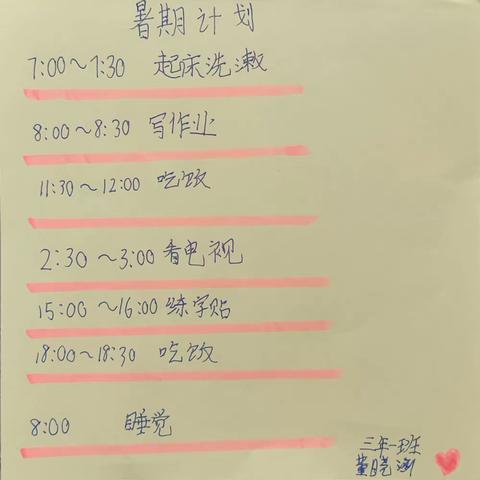 暑期计划
7:00～7:30 起床洗漱
8:00～8:30 写作业
11:30～12:00 吃饭
2:30～3:00 看电视
15:00～16:00 练字贴
18:00～18:30 吃饭
8:00 睡觉
三年一班
董晓涵